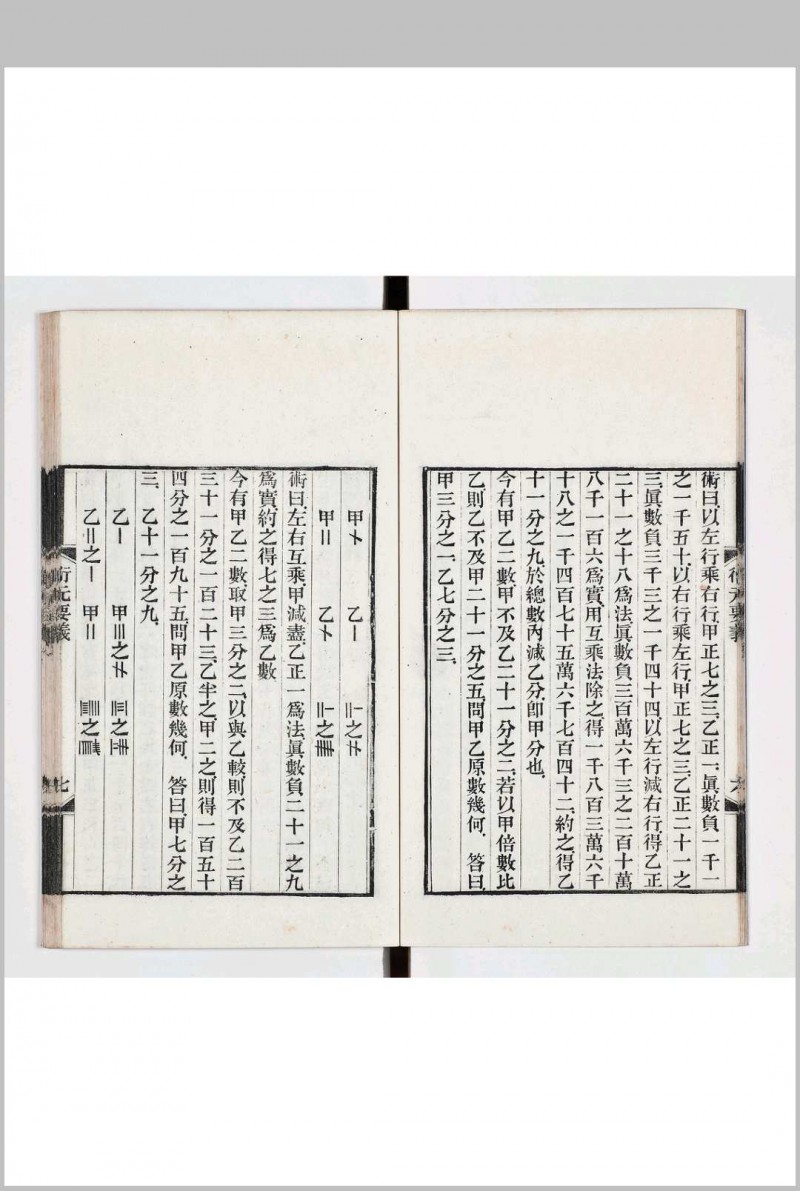 術曰以左行乘右行甲正七之三乙正一眞數負一千一
之一千五十以右行乘左行甲正七之三乙正二十一之
三眞數負三千三之一千四十四以左行減右行得乙正
二十一之十八爲法眞數負三百萬六千三之二百十萬
八千一百六爲實用互乘法除之得一千八百三萬六千
十八之一千四百七十五萬六千七百四十二約之得乙
十一分之九於總數內減乙分卽甲分也
今有甲乙二數甲不及乙二十一分之二若以甲倍數比
乙則乙不及甲二十一分之五問甲乙原數幾何 答曰
甲三分之一乙七分之三
衍元要義
六
甲 乙一
甲〢 乙
術曰左右互乘甲減盡乙正一爲法眞數負二十一之九
爲實約之得七之三爲乙數
今有甲乙二數取甲三分之二以與乙較則不及乙二百
三十一分之一百二十三乙半之甲二之則得一百五十
四分之一百九十五問甲乙原數幾何 答曰甲七分之
三 乙十一分之九
乙一
乙〢之一 甲〢
衍元要義
七